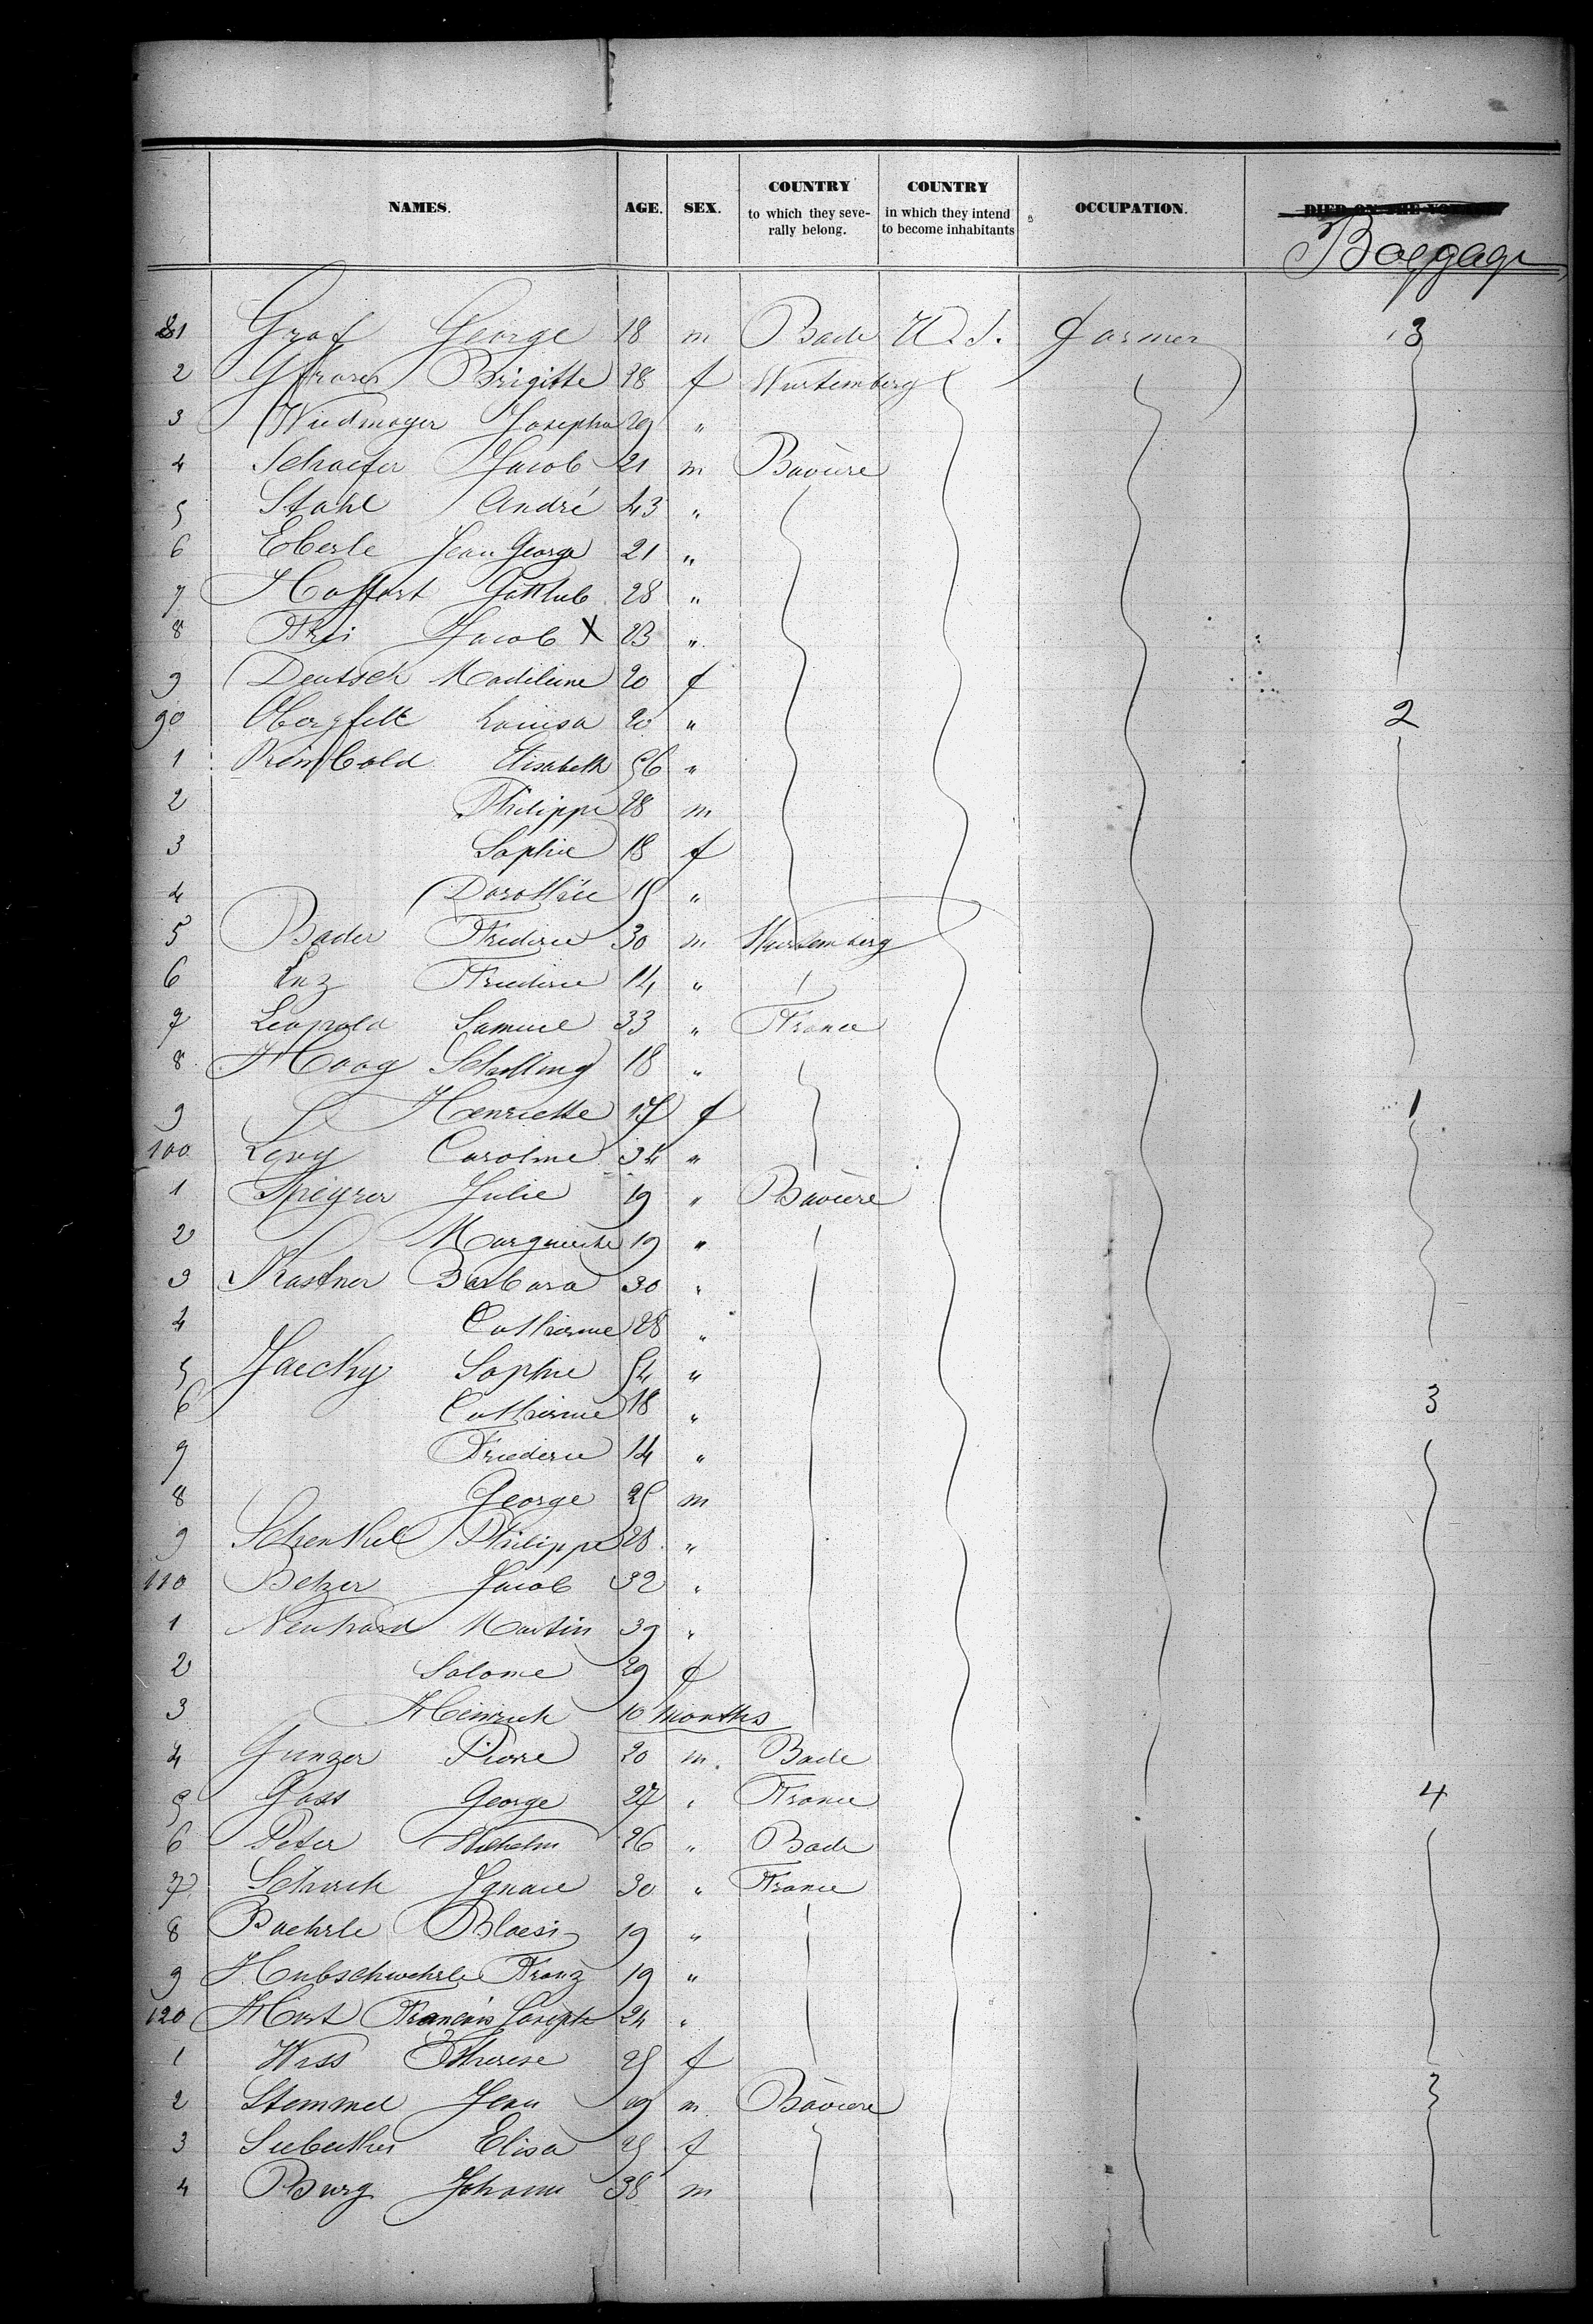 NAMES. AGE. SEX. COUNTRY to which they severally belong. COUNTRY in which they intend to become inhabitants OCCUPATION. DIED ON THE VOYAGE
Baggage
81 Graf George 18 m Bade U.S. farmer 3
2 Brigitte 28 f Wurtemberg
3 Wiedmayer Josepha 29 "
4 Schaefer Jacob 21 m Bavière
5 Stahl André 43 "
6 Eberle Jean George 21 "
7 Haffart Gottlieb 28 "
8 Frei Jacob X 23 "
9 Deutsch Madeleine 20 f
90 Obergfell Louisa 20 " 2
1 Reimbold Elisabeth 56 "
2 Philippe 28 m
3 Sophie 18 f
4 Dorothée 15 "
5 Bader Frederic 30 m Wurtemberg
6 Enz Friederic 14 "
7 Leopold Samuel 33 " France
8 Haag 18 "
9 Henriette 17 f 1
100 Levy Caroline 34 "
1 Speyrer Julie 19 " Bavière
2 Marguerite 19 "
3 Kastner Barbara 30 "
4 Catherine 28 "
5 Jaecky Sophie 54 "
6 Catherine 18 " 3
7 Friederic 14 "
8 George 25 m
9 Schenkel Philippe 28 "
110 Betzer Jacob 32 "
1 Neuhard Martin 39 "
2 Salome 29 f
3 Heinrich 10 months
4 Gunzer Pierre 20 m. Bade
5 Gass George 27 " France 4
6 Peter Wilhelm 26 " Bade
7 Schuck Ignace 30 " France
8 Baehrle Blaesi 19 "
9 Hubschwehrle Franz 19 "
120 Hart François Joseph 24 "
1 Wiss Therese 25 f
2 Stemmel Jean 19 m Bavière 3
3 Elisa 25 f
4 Burg Johann 38 m